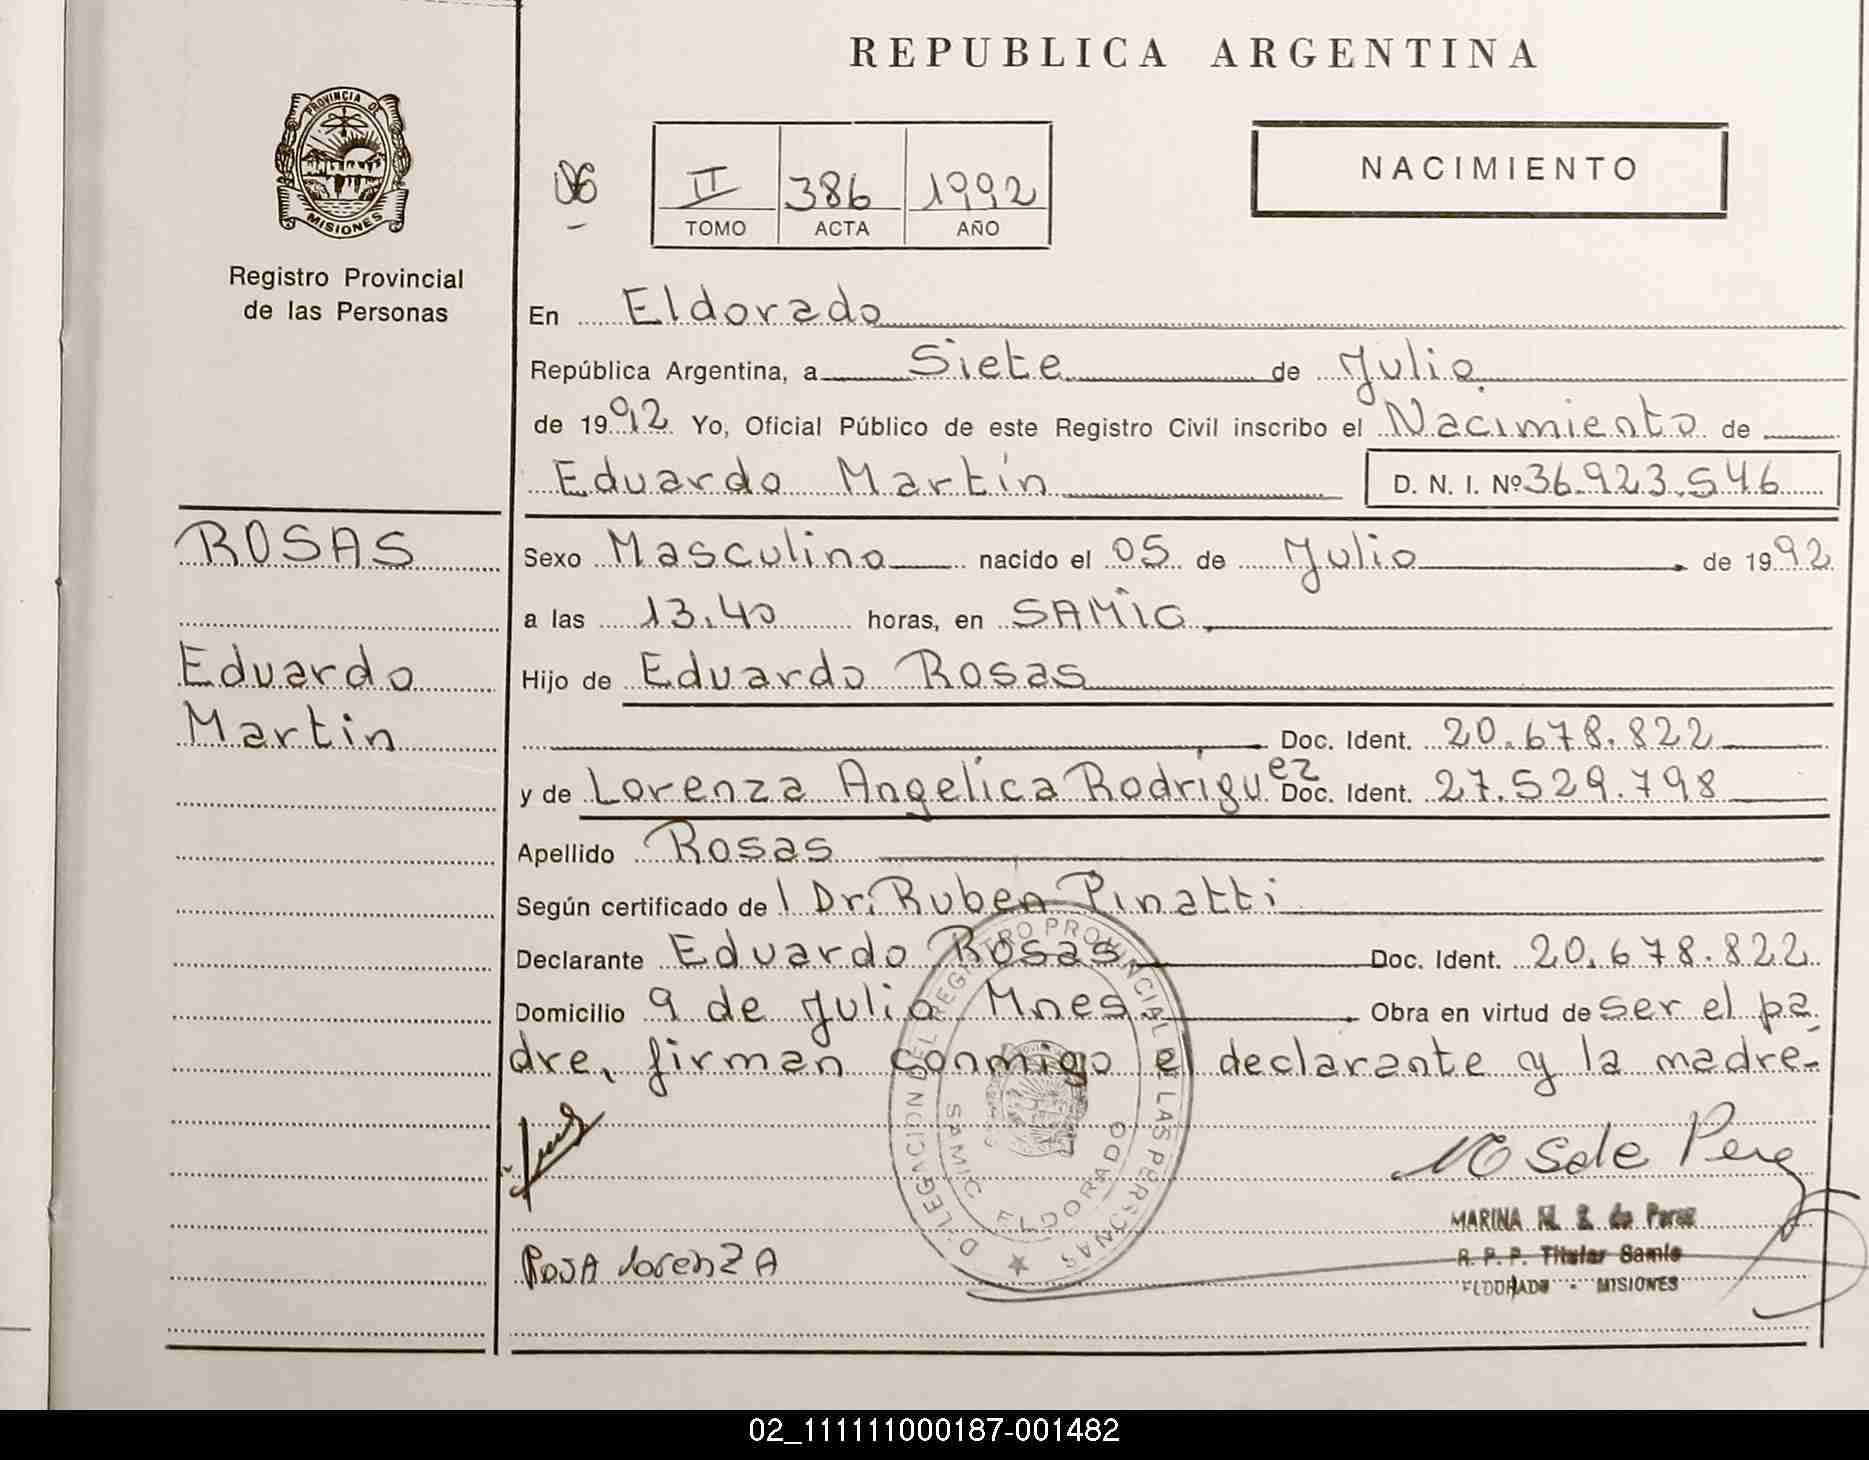 REPUBLICA ARGENTINA
PROVINCIA DE
MISIONES
Registro Provincial
de las Personas
06
II 386 1992
TOMO ACTA AÑO
NACIMIENTO
En Eldorado
República Argentina, a Siete de Julio
de 1992 Yo, Oficial Público de este Registro Civil inscribo el Nacimiento de
Eduardo Martín D. N. I. Nº 36.923.546
ROSAS
Eduardo
Martin
Sexo Masculino nacido el 05 de Julio de 1992
a las 13.40 horas, en SAMIC
Hijo de Eduardo Rosas
Doc. Ident. 20.678.822
y de Lorenza Angelica Rodríguez Doc. Ident. 27.529.798
Apellido Rosas
Según certificado de Dr. Ruben Pinatti
Declarante Eduardo Rosas Doc. Ident. 20.678.822
Domicilio 9 de Julio Mnes. Obra en virtud de ser el pa
dre, firman conmigo el declarante y la madre-
DELEGACION DEL REGISTRO PROVINCIAL DE LAS PERSONAS
SAMIC ELDORADO
Rosa lorenza
MARINA M. S. de Perez
R. P. P. Titular Samic
ELDORADO - MISIONES
02_111111000187-001482